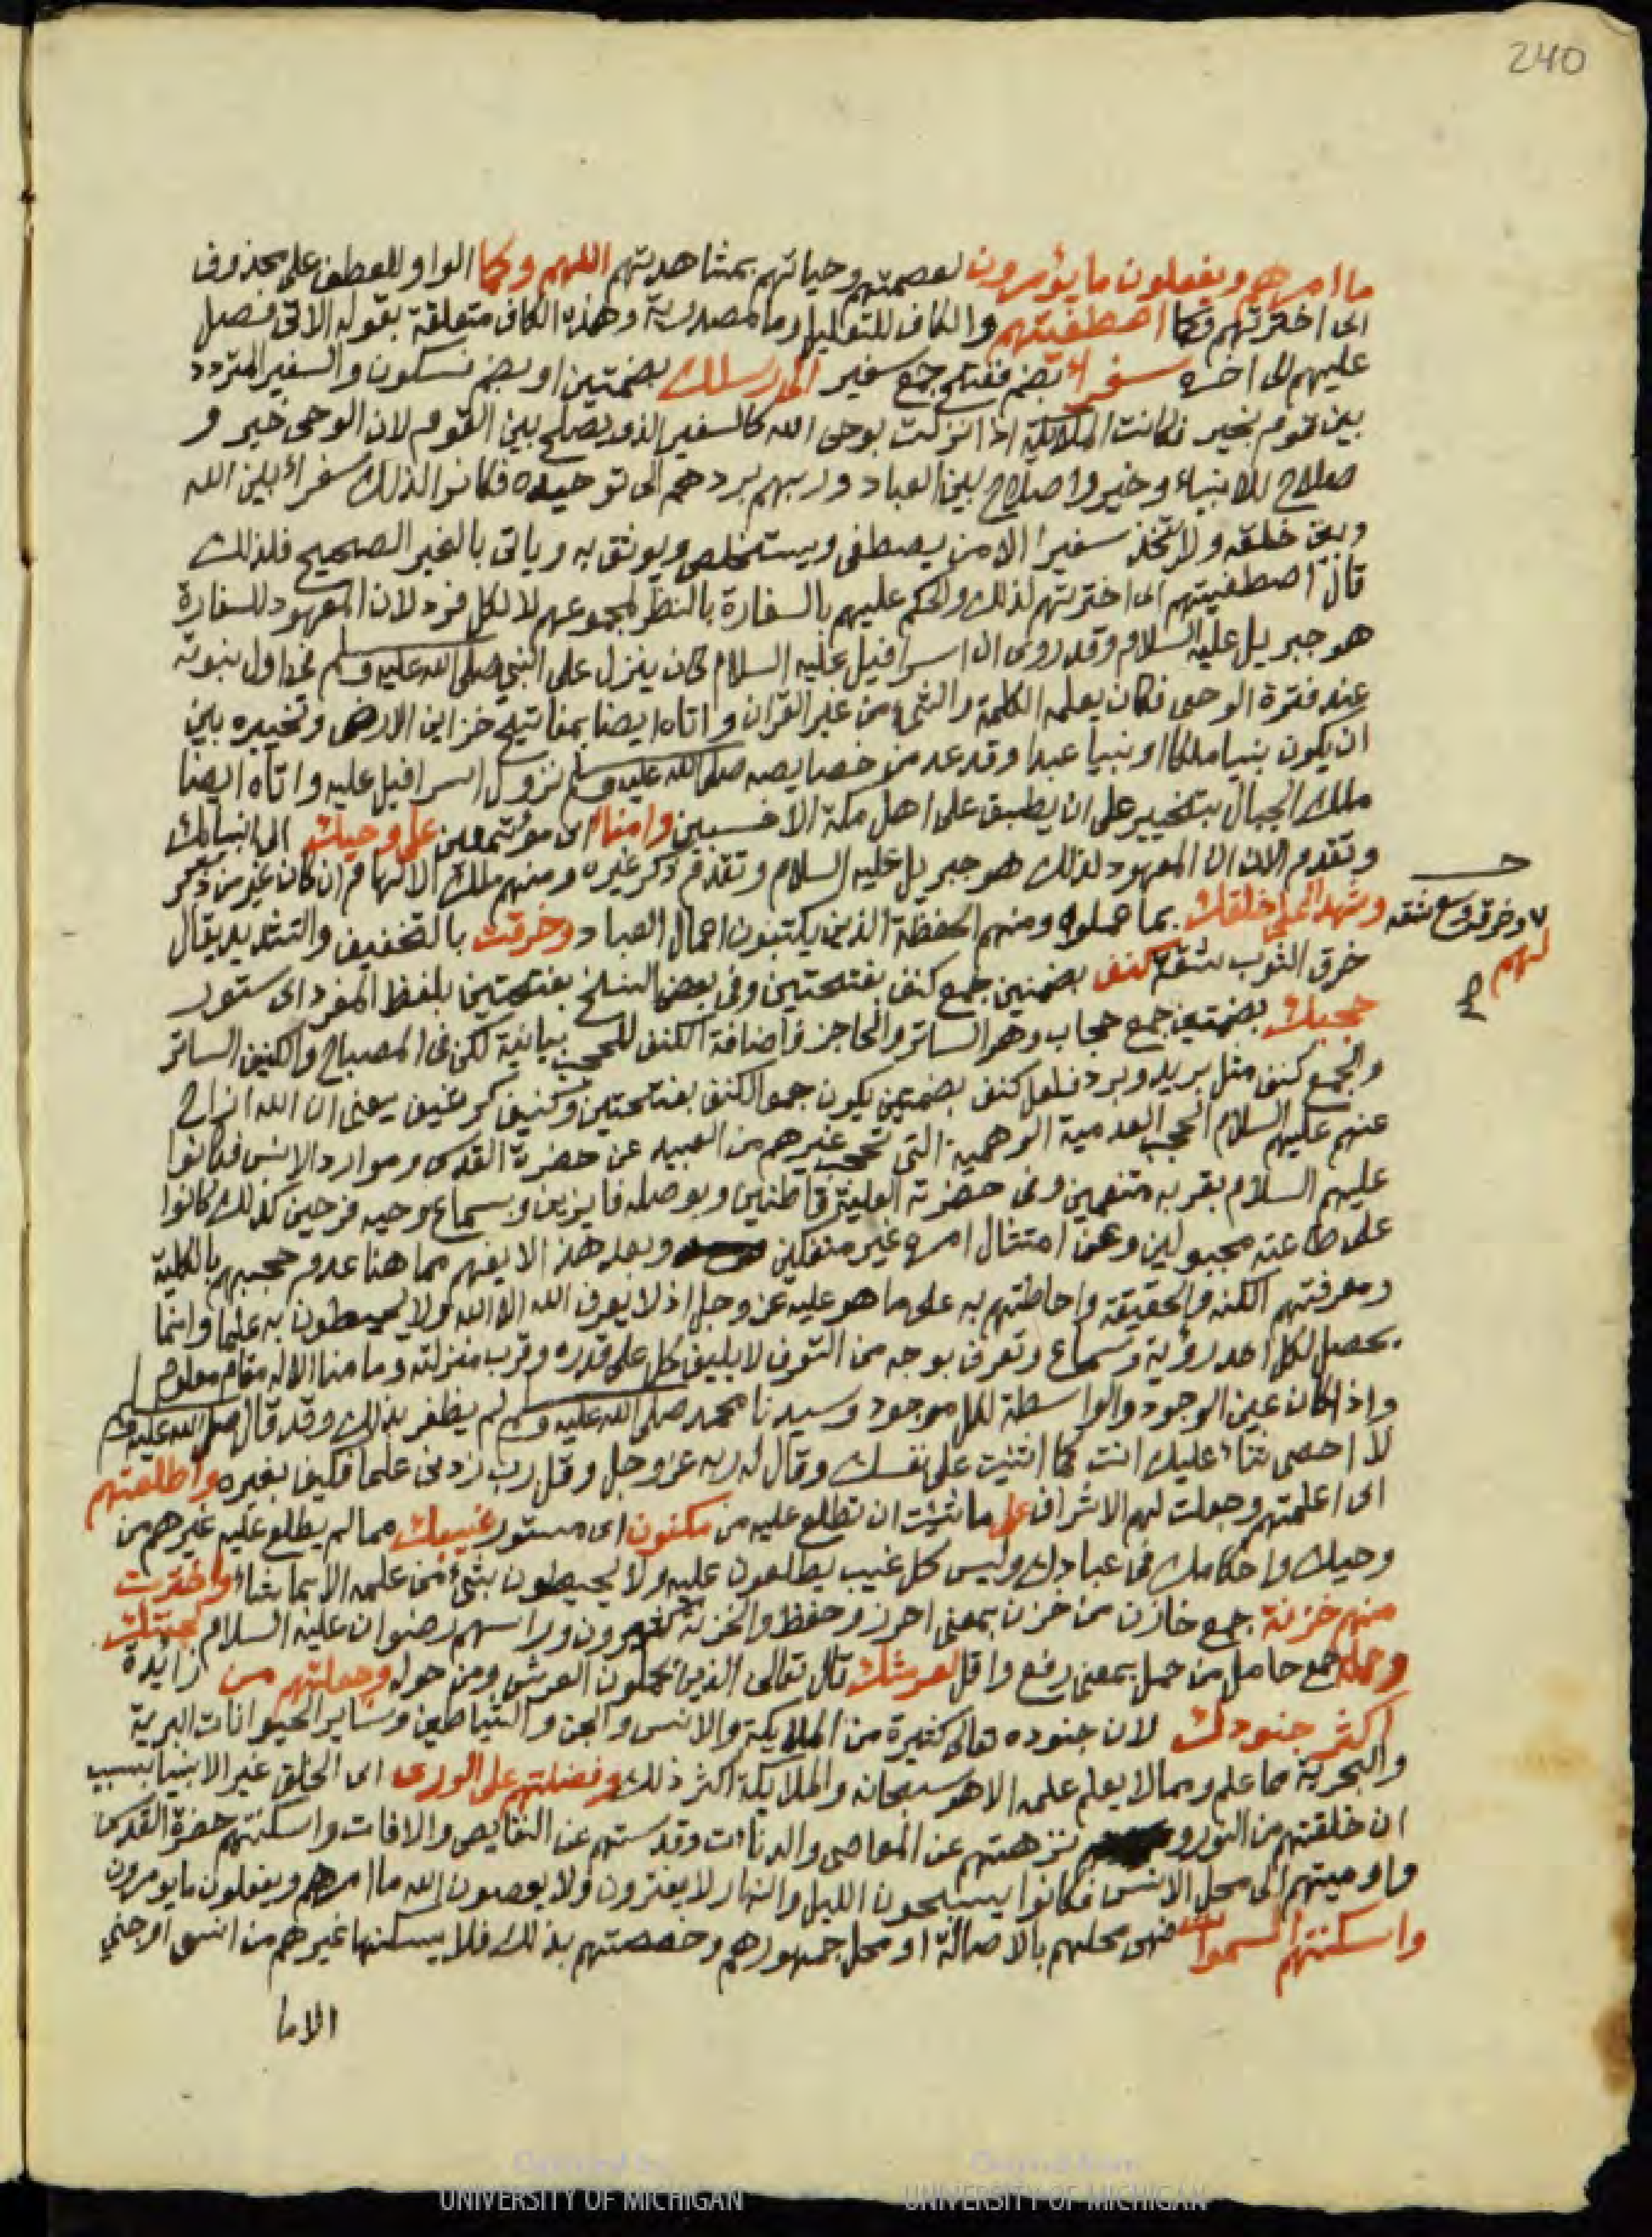 240
ما امرهم ويفعلون ما يؤمرون لعصمتهم وحياتهم بمشاهدتهم اللهم وكما الواو للعطف على محذوف
اى اخترتهم وكما اصطفيتهم والكاف للتعليل وما مصدرية وهذه الكاف متعلقة بقوله الاتى فصل
عليهم الى اخره سفراء بضم ففتح جمع سفير الى رسلك بضمتين او بضم فسكون والسفير المتردد
بين قوم بخير فكانت الملائكة اذا نزلت بوحى الله كالسفير الذى يصلح بين القوم لان الوحى خير و
صلاح للانبياء وخير واصلاح بين العباد وربهم بردهم الى توحيده فكانوا لذلك سفراء بين الله
وبين خلقه ولا يتخذ سفيرا الا من يصطفى ويستخلص ويوثق به وياتى بالخبر الصحيح فلذلك
قال اصطفيتهم اى اخترتهم لذلك والحكم عليهم بالسفارة بالنظر لمجموعهم لا لكل فرد لان المعهود للسفارة
هو جبريل عليه السلام وقد روى ان اسرافيل عليه السلام كان ينزل على النبى صلى الله عليه وسلم فى اول نبوته
عند فترة الوحى فكان يعلمه الكلمة والشىء من غير القران واتاه ايضا بمفاتيح خزاين الارض وتخييره بين
ان يكون نبيا ملكا او نبيا عبدا وقد عد من خصايصه صلى الله عليه وسلم نزول اسرافيل عليه واتاه ايضا
ملك الجبال بتخيير على ان يطبق على اهل مكة الاخشبين وامناء اى مؤتمنين على وحيك الى انبيائك
وتقدم الان ان المعهود لذلك هو جبريل عليه السلام وتقدم ذكر غيره ومنهم ملك الالهام ان كان غير من ذكر
وشهداء على خلقك بما عملوا ومنهم الحفظة الذين يكتبون اعمال العباد وخرقت بالتخفيف والتشديد يقال
وخرقت
لهم
خرق الثوب شقه كنف بضمتين جمع كنف بفتحتين وفى بعض النسخ بفتحتين بلفظ المفرد اى ستور
حجبك بضمتين جمع حجاب وهو الساتر والحاجز واضافة الكنف للحجب بيانية لكن فى المصباح والكنيف الساتر
والجمع كنف مثل بريد وبرد فلعل كنف بضمتين يكون جمع الكنف بفتحتين وكنيف كرغيف يعنى ان الله ازاح
عنهم عليهم السلام الحجب العدمية الوهمية التى تحجب غيرهم من العبيد عن حضرة القدس وموارد الانس فكانوا
عليهم السلام بقربه متنعمين وفى حضرته العلية قاطنين وبوصله فايزين وبسماع وحيه فرحين كذلك كانوا
على طاعته مجبولين وعن امتثال امره غير منفكين وبعد هذا لا يفهم مما هنا عدم حجبهم بالكلية
ومعرفتهم الكنه والحقيقة واحاطتهم به على ما هو عليه عز وجل اذ لا يعرف الله الا الله ولا يحيطون به علما وانما
يحصل لكل احد رؤية وسماع وتعرف بوجه من التعرف لايليق كل على قدره وقرب منزلته وما منا الا له مقام معلوم
واذا كان عين الوجود والواسطة لكل موجود وسيدنا محمد صلى الله عليه وسلم لم يظفر بذلك وقد قال صلى الله عليه وسلم
لا احصى ثناء عليك انت كما اثنيت على نفسك وقال له ربه عز وجل وقل رب زدنى علما فكيف بغيره واطلعتهم
اى اعلمتهم وجعلت لهم الاشراف على ما شئت ان تطلع عليه من مكنون اى مستور غيبك مما لم يطلع عليه غيرهم من
وحيك واحكامك فى عبادك وليس كل غيب يطلعون عليه ولا يحيطون بشىء من علمه الا بما شاء واخترت
منهم خزنة جمع خازن من خزن بمعنى احرز وحفظ والخزنة كثيرون وراسهم رضوان عليه السلام لجنتك
وحملة جمع حامل من حمل بمعنى رفع واقل لعرشك قال تعالى الذين يحملون العرش ومن حوله وجعلتهم من زايدة
اكثر جنودك لان جنوده تعالى كثيرة من الملايكة والانس والجن والشياطين وساير الحيوانات البرية
والبحرية مما علم ومما لا يعلم علمه الا هو سبحانه والملايكة اكثر ذلك وفضلتهم على الورى اى الخلق غير الانبيا بسبب
ان خلقتهم من النور و نزهتهم عن المعاصى والدناءت وقدستهم عن النقايص والافات واسكنتهم حضرة القدس
واوميتهم الى محل الانس فكانوا يسبحون الليل والنهار لا يفترون ولا يعصون الله ما امرهم ويفعلون ما يومرون
واسكنتهم السموات فهى محلهم بالاصالة او محل جمهورهم وخصصتهم بذلك فلا يسكنها غيرهم من انس او جنى
الاما
UNIVERSITY OF MICHIGAN
UNIVERSITY OF MICHIGAN